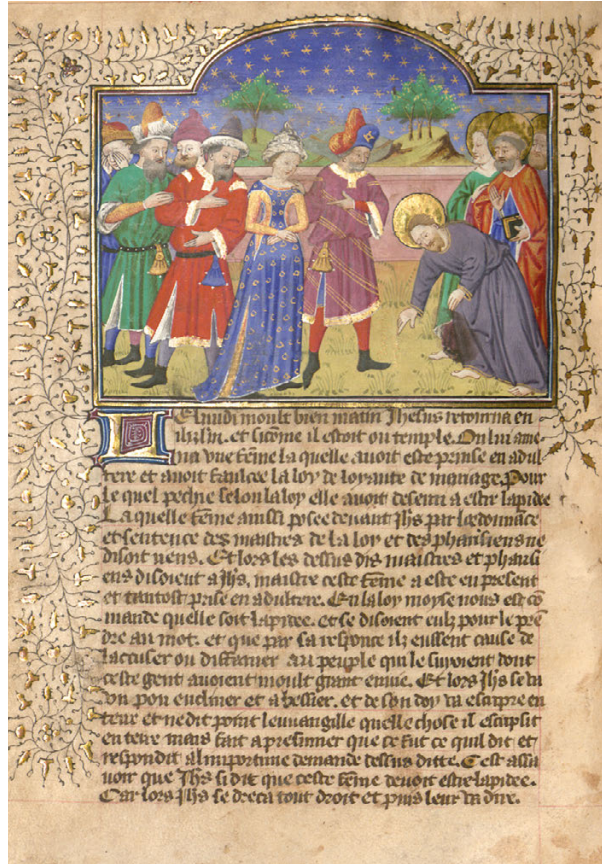 Le lundi moult bien matin Jhesus retourna en
ihrlm. et sicōme il estoit ou temple. On lui ame
na vne fēme la quelle auoit este prinse en adul
tere et auoit faulcee la loy de loyaute de mariage. Pour
le quel pechie selon la loy elle auoit deserui a estre lapidee
La quelle fēme ainssi posee deuant Jhs par lordonnāce
et sentence des maistres de la loy et des pharisiens ne
disoit riens. Et lors les dessus dis maistres et pharisi
ens disoient a Jhs, maistre ceste fēme a este en present
et tantost prise en adultere. En la loy moyse nous est cō
mande quelle soit lapidee. et se disoient eulx pour le pren
dre au mot. et que par sa responce ilz eussent cause de
laccuser ou diffamer au peuple qui le suiuoient dont
ceste gent auoient moult grant enuie. Et lors Jhs se va
vn pou encliner et abessier. et de son doy va escripre en
terre et ne dit point leuuangille quelle chose il escripsit
en terre mais fait a presumer que ce fut ce quil dit et
respondit a limportune demande dessus ditte. Cest assa
uoir que Jhs si dit que ceste fēme deuoit estre lapidee.
Car lors Jhs se dreca tout droit et puis leur va dire.